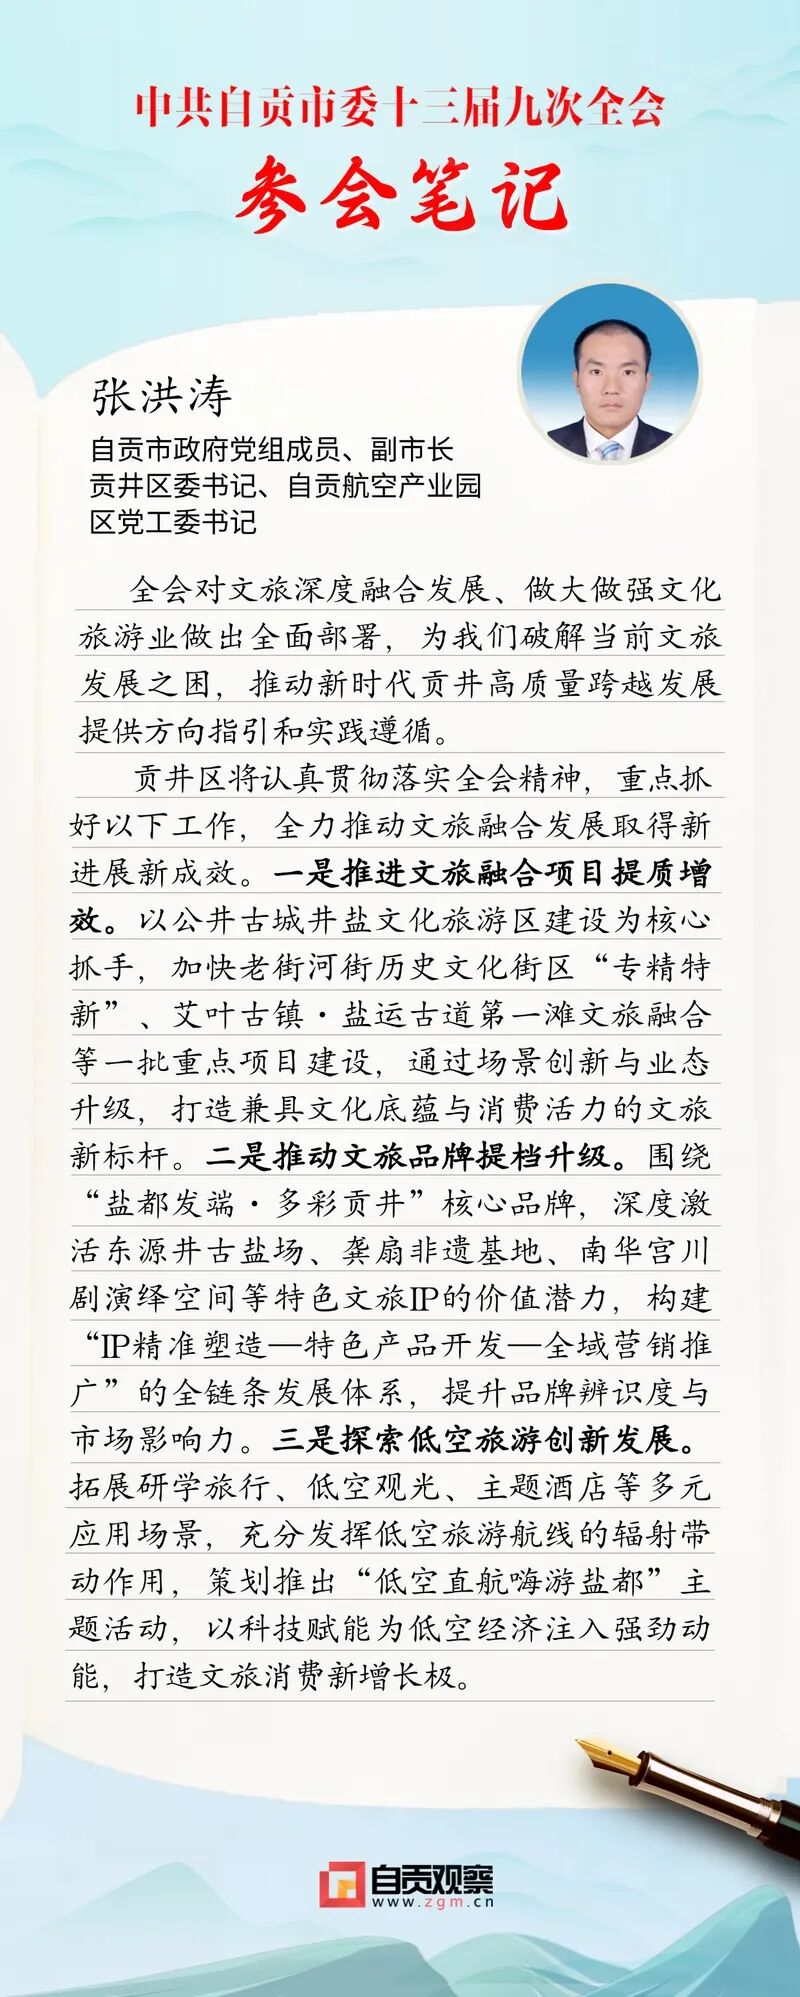 中共自贡市委十三届九次全会
参会笔记
张洪涛
自贡市政府党组成员、副市长
贡井区委书记、自贡航空产业园
区党工委书记
全会对文旅深度融合发展、做大做强文化
旅游业做出全面部署，为我们破解当前文旅
发展之困，推动新时代贡井高质量跨越发展
提供方向指引和实践遵循。
贡井区将认真贯彻落实全会精神，重点抓
好以下工作，全力推动文旅融合发展取得新
进展新成效。一是推进文旅融合项目提质增
效。以公井古城井盐文化旅游区建设为核心
抓手，加快老街河街历史文化街区“专精特
新”、艾叶古镇·盐运古道第一滩文旅融合
等一批重点项目建设，通过场景创新与业态
升级，打造兼具文化底蕴与消费活力的文旅
新标杆。二是推动文旅品牌提档升级。围绕
“盐都发端·多彩贡井”核心品牌，深度激
活东源井古盐场、龚扇非遗基地、南华宫川
剧演绎空间等特色文旅IP的价值潜力，构建
“IP精准塑造—特色产品开发—全域营销推
广”的全链条发展体系，提升品牌辨识度与
市场影响力。三是探索低空旅游创新发展。
拓展研学旅行、低空观光、主题酒店等多元
应用场景，充分发挥低空旅游航线的辐射带
动作用，策划推出“低空直航嗨游盐都”主
题活动，以科技赋能为低空经济注入强劲动
能，打造文旅消费新增长极。
自贡观察
www.zgm.cn